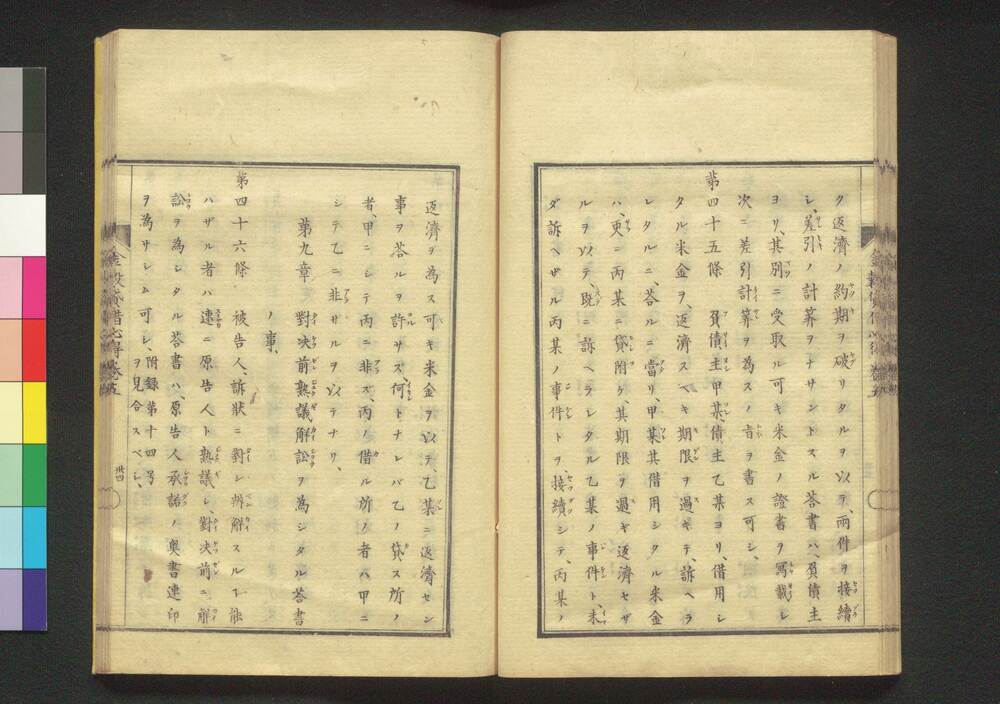 ク返濟ノ約期ヲ破リタルヲ以テ、兩件ヲ接續
シ、差引ノ計算ヲナサントスル荅書ハ、負債主
ヨリ、其別ニ受取ル可キ米金ノ證書ヲ寫載シ
次ニ差引計算ヲ為スノ旨ヲ書ス可シ、
第四十五條　負債主甲某、債主乙某ヨリ、借用シ
タル米金ヲ、返濟スベキ期限ヲ過キテ、訴ヘラ
レタルニ、荅ルニ當リ、甲某其借用シタル米金
ハ、更ニ丙某ニ貸附ケ、其期限ヲ過キ返濟セザ
ルヲ以テ、既ニ訴ヘラレタル乙某ノ事件ト、未
ダ訴ヘザル丙某ノ事件トヲ、接續シテ、丙某ノ
返濟ヲ為ス可キ米金ヲ以テ、乙某ニ返濟セン
事ヲ荅ルヲ許サズ何トナレバ乙ノ貸ス所ノ
者、甲ニシテ丙ニ非ズ、丙ノ借ル所ノ者ハ甲ニ
シテ乙ニ非サルヲ以テナリ、
第九章　對決前熟議解訟ヲ為シタル荅書
ノ事、
第四十六條　被告人、訴狀ニ對シ辨解スルヿ能
ハザル者ハ速ニ原告人ト熟議シ、對決前ニ解
訟ヲ為シタル荅書ハ、原告人承諾ノ奥書連印
ヲ為サシム可シ、附録第十四号
ヲ見合スベシ、
金穀貸借心得卷五
卅四